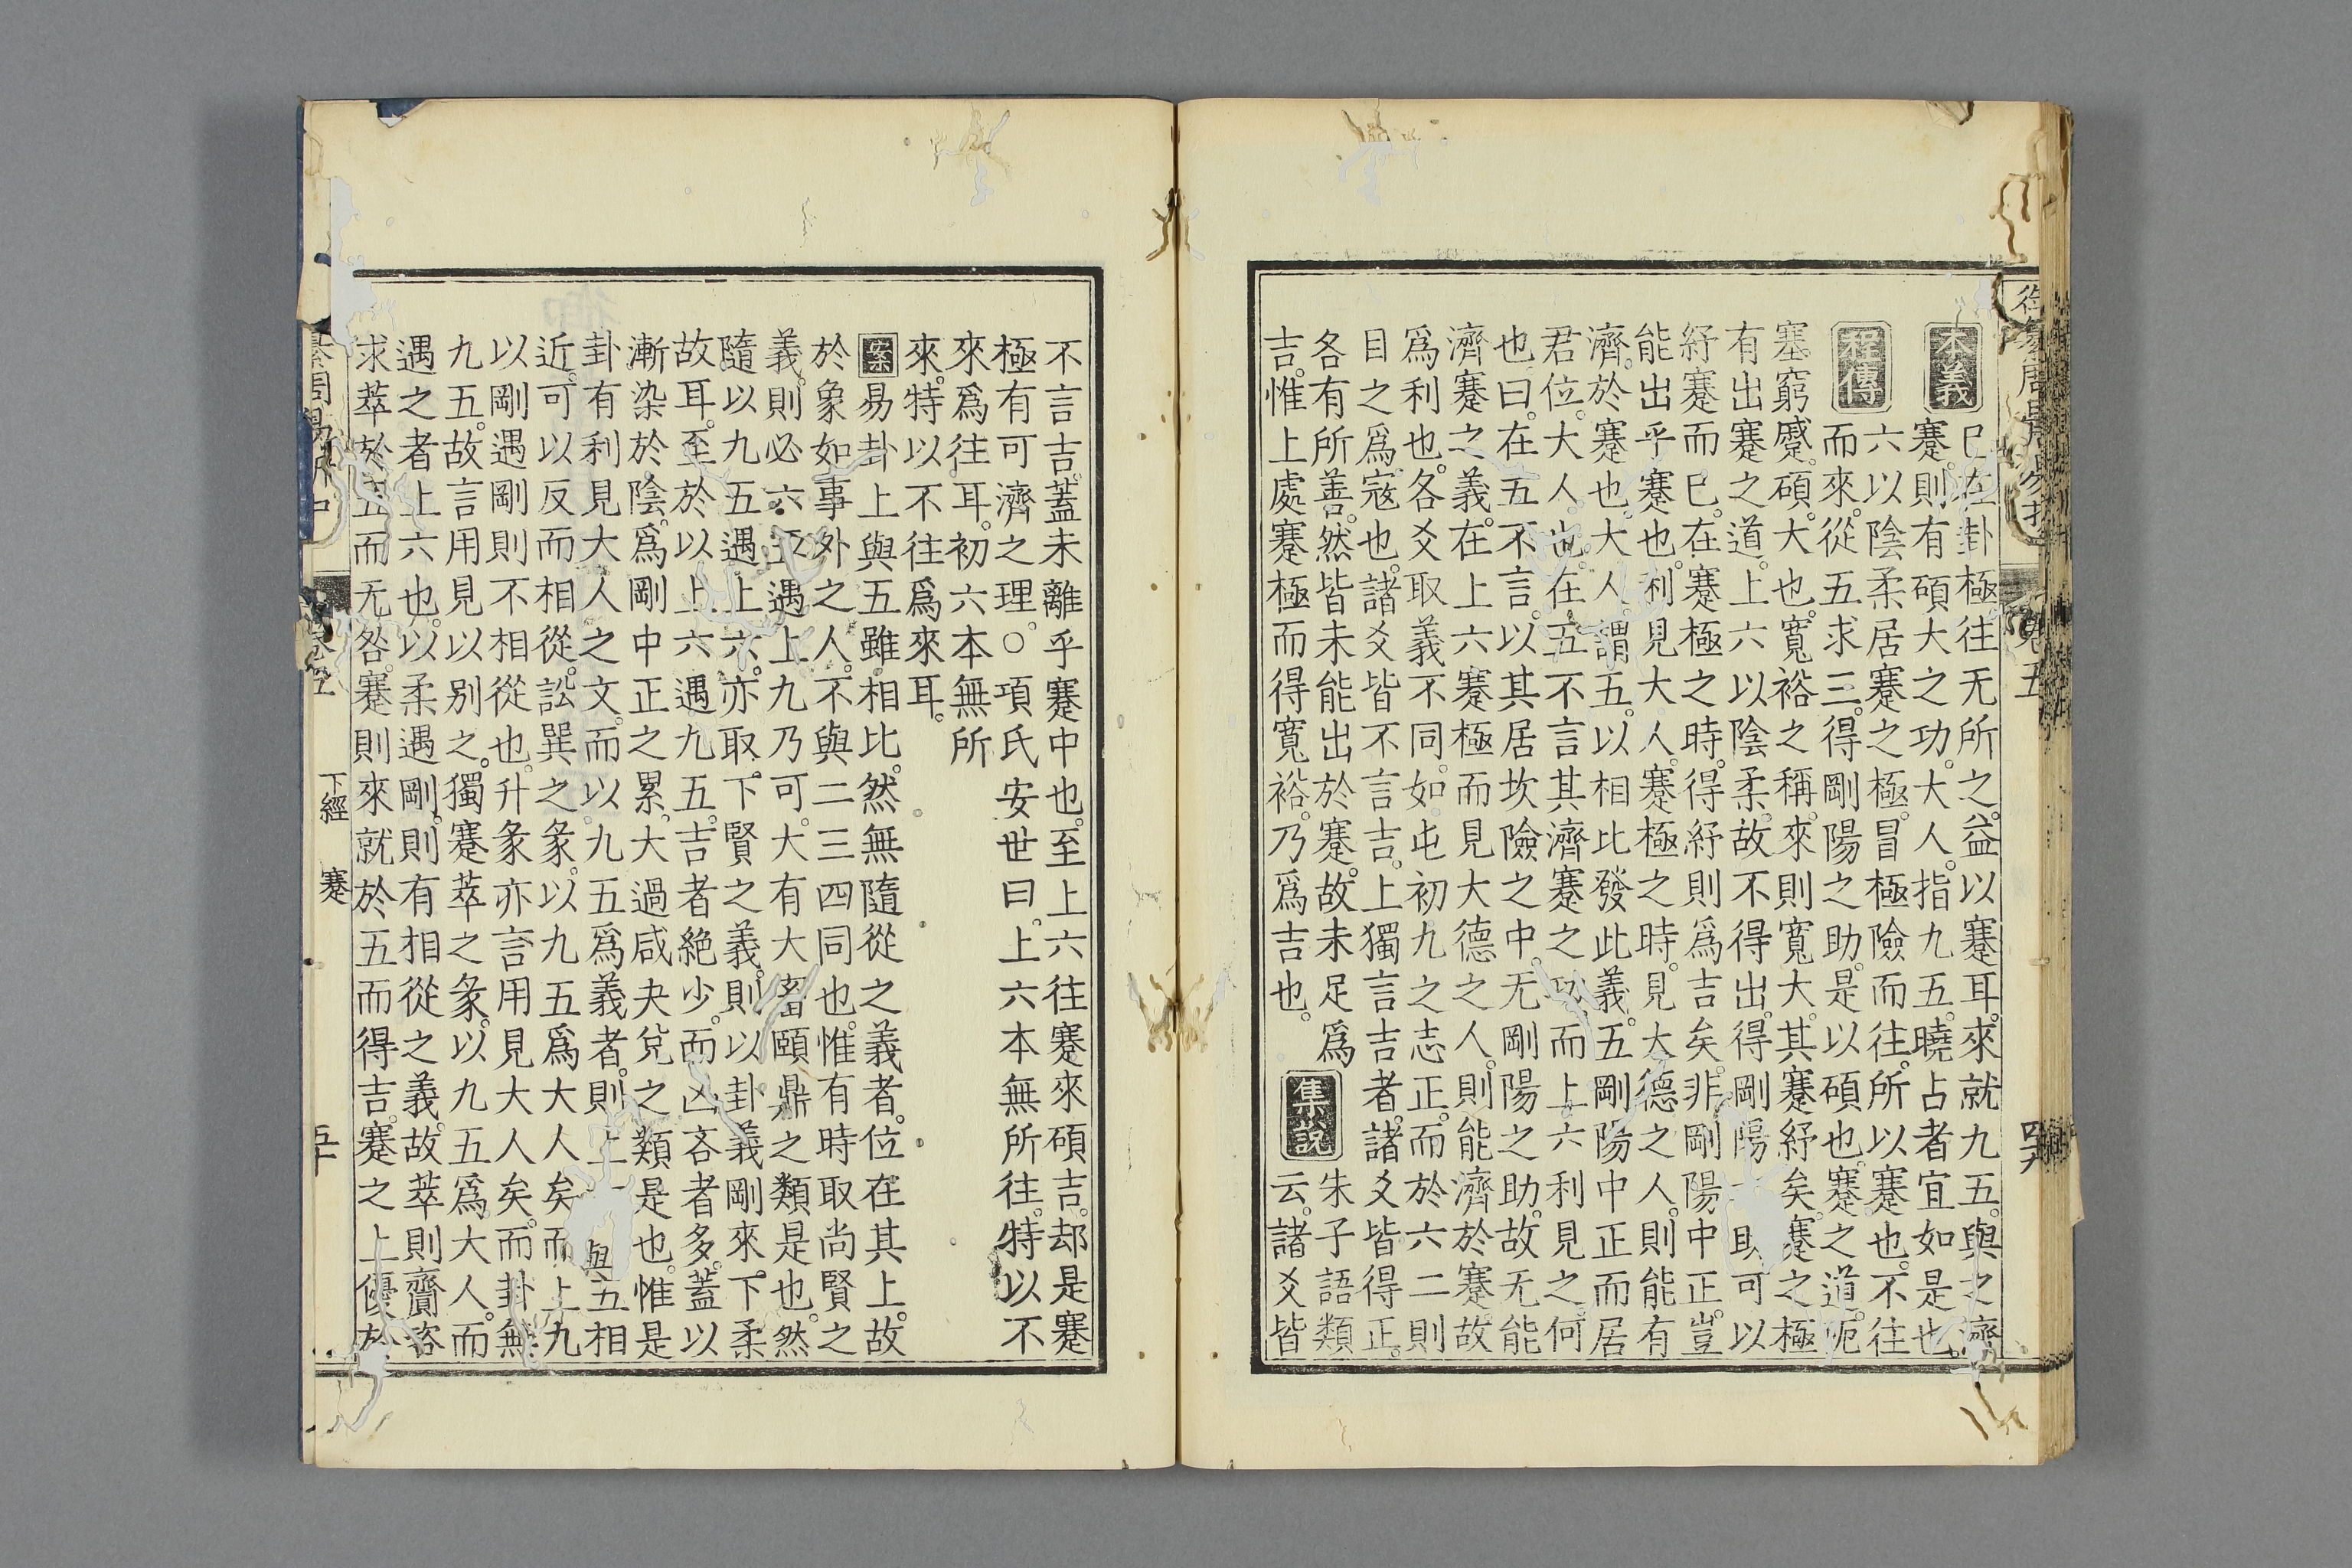 本義
已在卦極往无所之益以蹇耳來就九五與之濟
蹇則有碩大之功大人指九五曉占者宜如是也
程傳
六以陰柔居蹇之極冒極險而往所以蹇也不往
而來從五求三得剛陽之助是以碩也蹇之道阨
塞窮蹙碩大也寬裕之稱來則寬大其蹇紓矣蹇之極
有出蹇之道上六以陰柔故不得出得剛陽之助可以
紓蹇而已在蹇極之時得紓則爲吉矣非剛陽中正豈
能出乎蹇也利見大人蹇極之時見大德之人則能有
濟於蹇也大人謂五以相比發此義五剛陽中正而居
君位大人也在五不言其濟蹇之功而上六利見之何
也曰在五不言以其居坎險之中无剛陽之助故无能
濟蹇之義在上六蹇極而見大德之人則能濟於蹇故
爲利也各爻取義不同如屯初九之志正而於六二則
目之爲寇也諸爻皆不言吉上獨言吉者諸爻皆得正
各有所善然皆未能出於蹇故未足爲
吉惟上處蹇極而得寬裕乃爲吉也
集說
朱子語類
云諸爻皆
不言吉蓋未離乎蹇中也至上六往蹇來碩吉却是蹇
極有可濟之理○項氏安世曰上六本無所往特以不
來爲往耳初六本無所
來特以不往爲來耳
案
易卦上與五雖相比然無隨從之義者位在其上故
於象如事外之人不與二三四同也惟有時取尚賢之
義則必六五遇上九乃可大有大畜頤鼎之類是也然
隨以九五遇上六亦取下賢之義則以卦義剛來下柔
故耳至於以上六遇九五吉者絶少而凶吝者多蓋以
漸染於陰爲剛中正之累大過咸夬兌之類是也惟是
卦有利見大人之文而以九五爲義者則上與五相
近可以反而相從訟巽之彖以九五爲大人矣而上九
以剛遇剛則不相從也升彖亦言用見大人矣而卦無
九五故言用見以别之獨蹇萃之彖以九五爲大人而
遇之者上六也以柔遇剛則有相從之義故萃則齎咨
求萃於五而无咎蹇則來就於五而得吉蹇之上優於
下經 蹇 五十